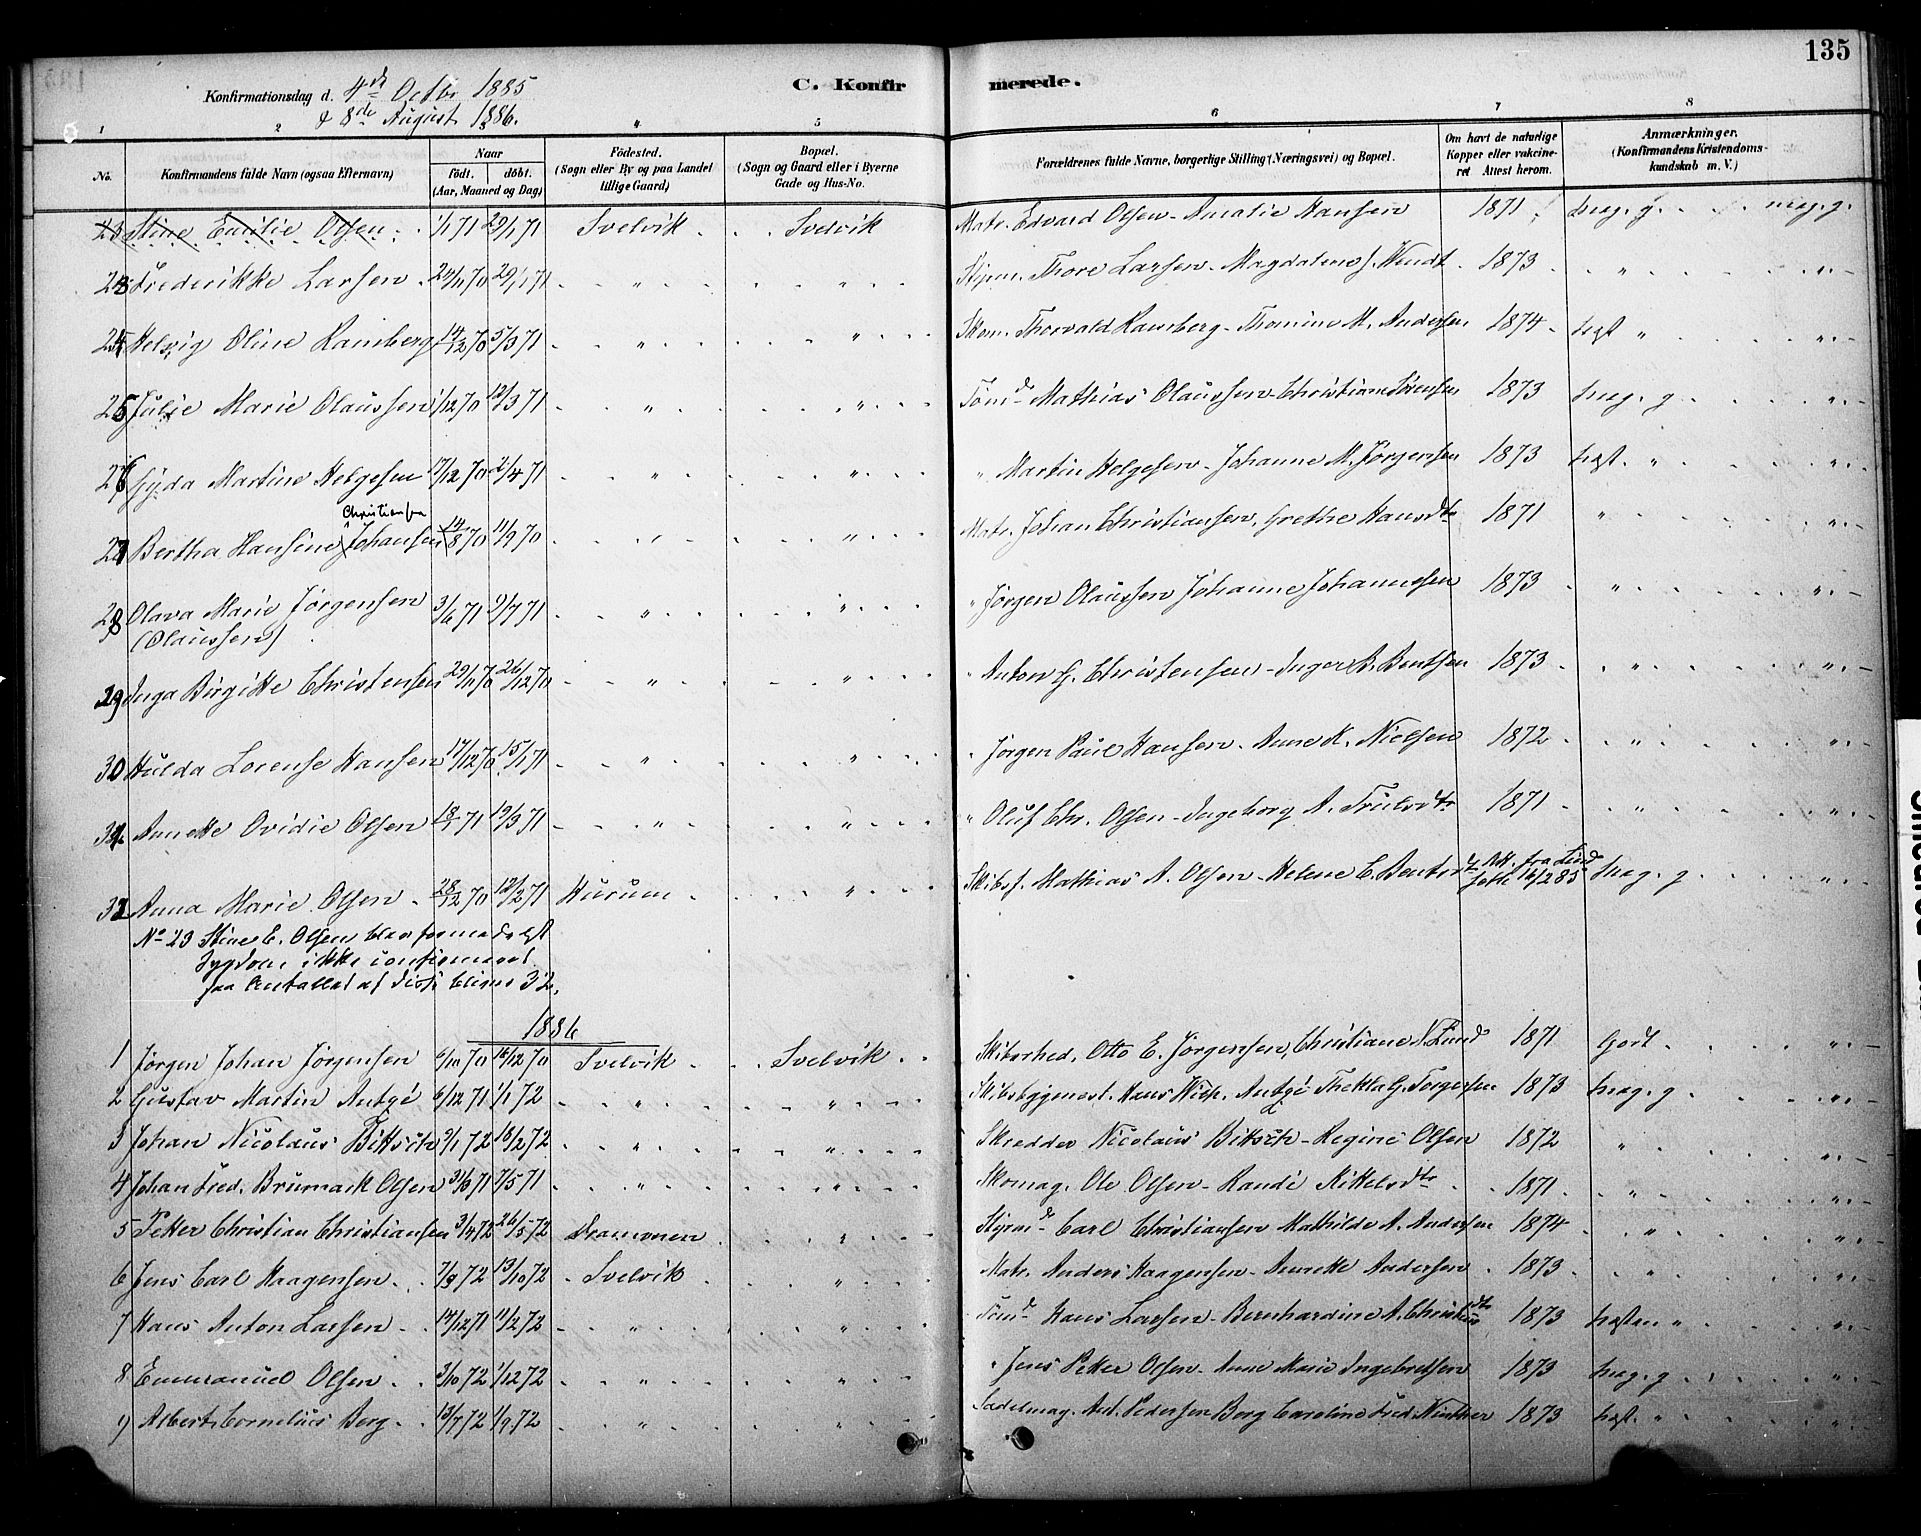 135
Konfirmationsdag d. 4de Octbr 1885
& 8de August 1886.
C. Konfirmerede.
1 2 3 4 5 6 7 8
No. Konfirmandens fulde Navn (ogsaa Efternavn) Naar födt. döbt. (Aar, Maaned og Dag) Födested. (Sogn eller By og paa Landet tillige Gaard) Bopæl. (Sogn og Gaard eller i Byerne Gade og Hus-No. Forældrenes fulde Navne, borgerlige Stilling (Næringsvei) og Bopæl. Om havt de naturlige Kopper eller vakcineret Attest herom. Anmærkninger. (Konfirmandens Kristendomskundskab m. V.)
23 Stine Emilie Olsen 1/1 71 29/1 71 Svelvik Svelvik Matr. Edvard Olsen - Amalie Hansen 1871 meg. g. meg. g.
Frederikke Larsen 24/11 70 29/1 71 " " Styrm. Thore Larsen - Magdalene J. Wendt 1873 " "
Helvig Oline Ramberg 14/12 70 5/3 71 " " Skom. Thorvald Ramberg - Thomine M. Andersen 1874 "
Julie Marie Olaussen 1/12 70 12/3 71 " " Tömd Mathias Olaussen - Christiane Sörensen 1873 meg. g "
Gyda Martine Helgesen 17/12 70 2/4 71 " " " Martin Helgesen - Johanne M. Jörgensen 1873 "
Christiansen
27 Bertha Hansine Johansen 14/8 70 11/9 70 " " Matr. Johan Christiansen, Grethe Hansdtr 1871 " "
28 Olava Marie Jörgensen 3/6 71 2/7 71 " " " Jörgen Olaussen Johanne Johannessen 1873 " "
(Olaussen)
29 Inga Birgitte Christensen 29/11 70 26/12 70 " " " Anton G. Christensen - Inger B. Bentsen 1873 " "
30 Hulda Lorense Hansen 17/12 70 15/1 71 " " " Jörgen Paul Hansen - Anne K. Nielsen 1872 " "
31 Annette Ovidie Olsen 18/1 71 19/3 71 " " " Oluf Chr. Olsen - Ingeborg A. Trulsdtr 1871 " "
32 Anna Marie Olsen 28/12 70 12/2 71 Hurum " Skibsf. Mathias A. Olsen - Helene C. Bentsdtr Att. fra 16/2 85 meg. g "
No 23 Stine E. Olsen blev formedelst
Sygdom ikke confirmeret
saa Antallet af disse bliver 32.
1886
1 Jørgen Johan Jørgensen 6/10 70 18/12 70 Svelvik Svelvik Skibsrhed. Otto E. Jørgensen, Christiane N. Lund 1871 Godt "
2 Gustav Martin Antgé 6/12 71 1/1 72 " " Skibsbygmest. Hans Wilh. Antgé Thekla G. Torgersen 1873 meg. g "
3 Johan Nicolaus Bittsch 9/1 72 18/2 72 " " Skredder Nicolaus Bittsch - Regine Olsen 1872 " "
4 Johan Fred. Brumark Olsen 31/3 71 7/5 71 " " Skomag. Ole Olsen - Randi Kittelsdtr 1871 " "
5 Petter Christian Christiansen 3/4 72 26/5 72 Drammen " Styrmd Carl Christiansen Mathilde A. Andersen 1874 " "
6 Jens Carl Haagensen 7/9 72 13/10 72 Svelvik " Matr. Anders Haagensen - Annette Andersen 1873 " "
7 Hans Anton Larsen 14/12 71 11/2 72 " " Tömd Hans Larsen - Bernhardine A. Christensdtr 1873 næsten " "
8 Emmanuel Olsen 3/10 72 1/12 72 " " " Jens Petter Olsen - Anne Marie Ingebretsen 1873 meg. g "
9 Albert Cornelius Berg 13/7 72 1/9 72 " " Sadelmag. Ant. Pedersen Berg Caroline Fred. Winther 1873 " "